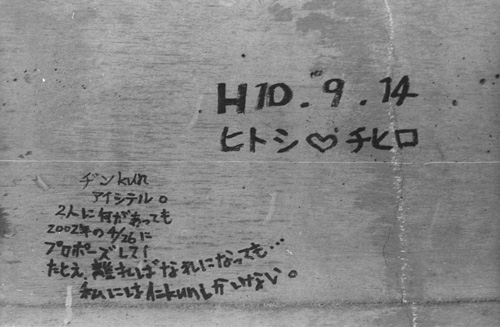 H10.9.14
ヒトシ♡チヒロ
ヂンkun
アイシテル。
2人に何があっても
2002年の4/26に
プロポーズして!
たとえ、離ればなれになっても…
私には仁kunしかいない。